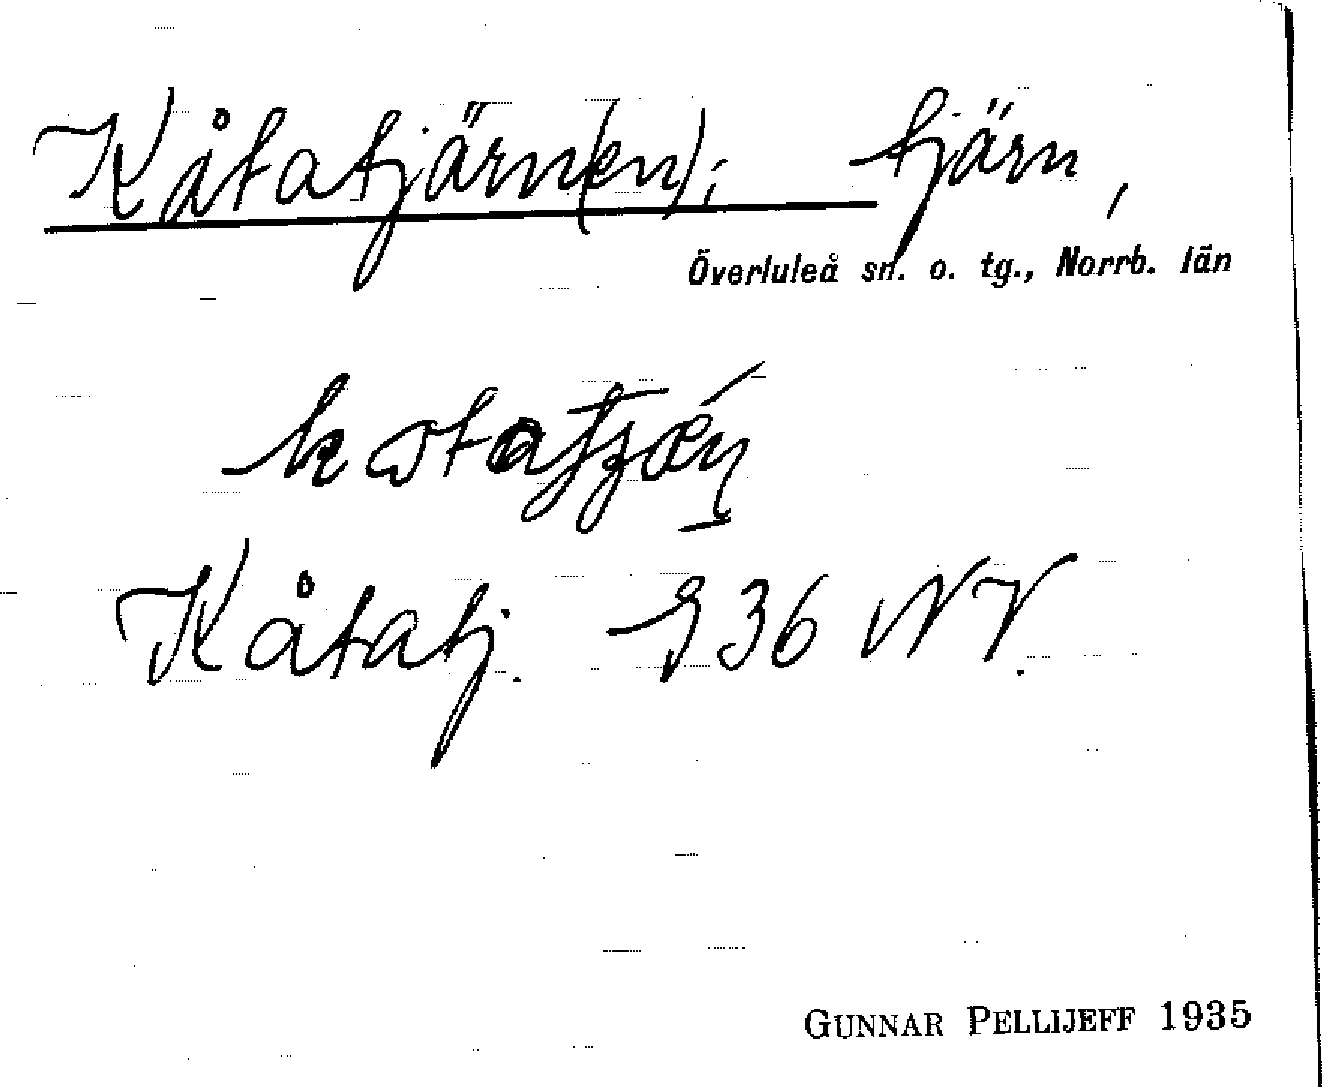 Kåtatjärn(en); tjärn,
Överluleå sn. o. tg., Norrb. län
Kåtatj. 936 NV.
GUNNAR PELLIJEFF 1935